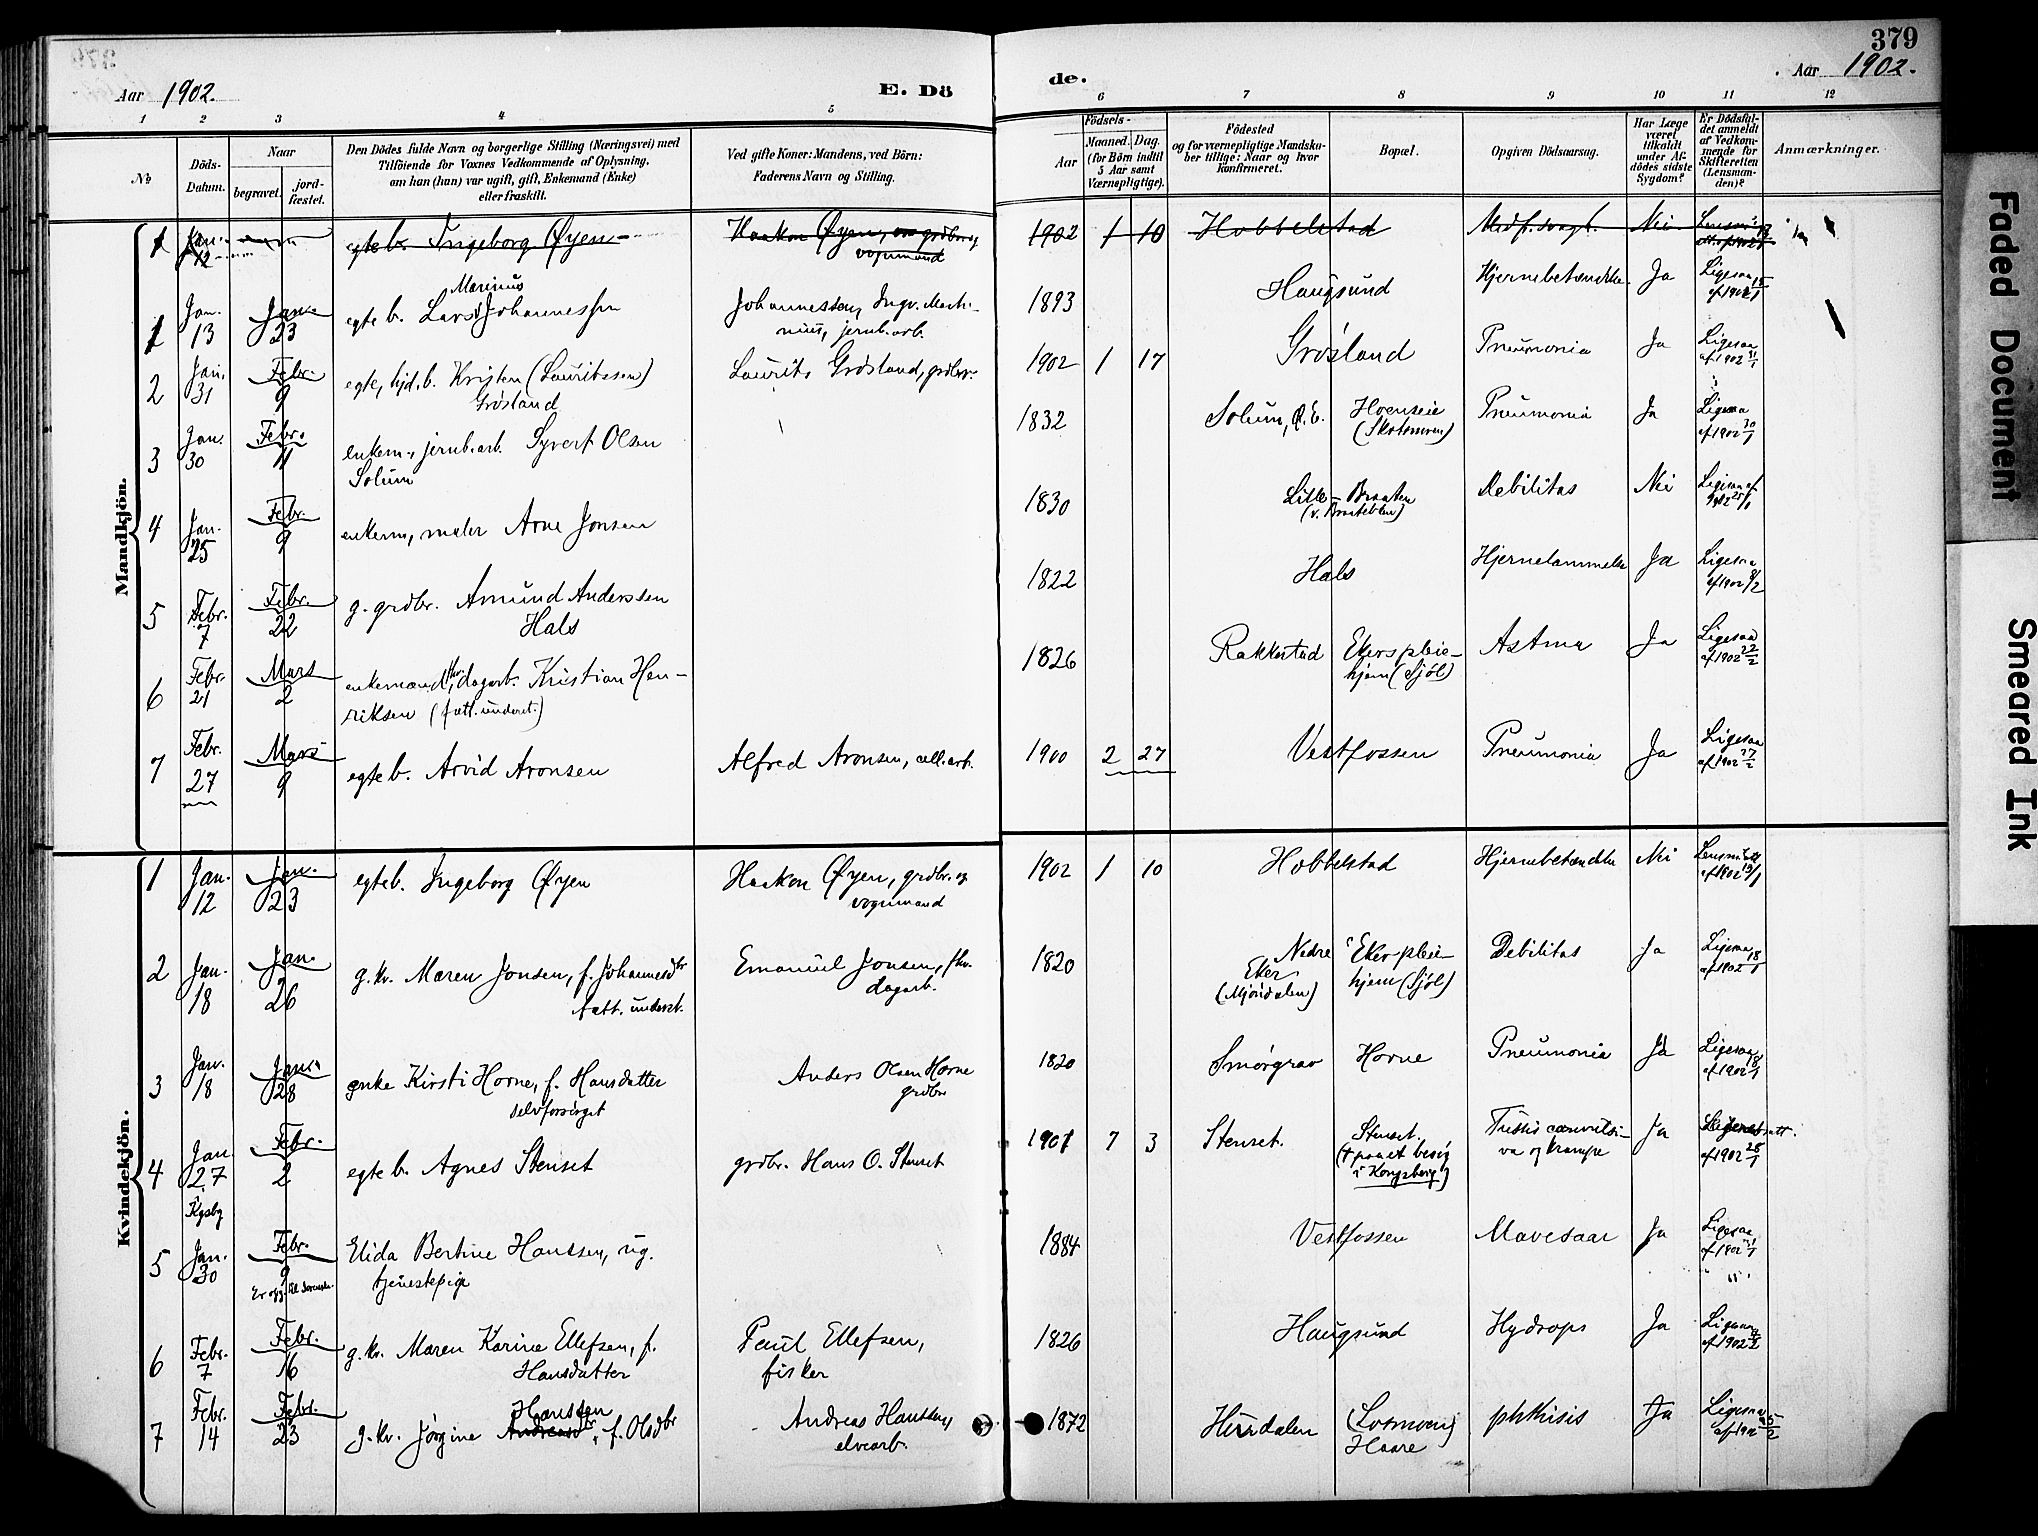 379
Aar 1902.
E. Dö
de.
Aar 1902.
1 2 3 4 5 6 7 8 9 10 11 12
No
Döds-
Datum.
Naar
begravet.
jord-
fæstet.
Den Dödes fulde Navn og borgerlige Stilling (Næringsvei) med
Tilföiende for Voxnes Vedkommende af Oplysning,
om han (hun) var ugift, gift, Enkemand (Enke)
eller fraskilt.
Ved gifte Koner: Mandens, ved Börn:
Faderens Navn og Stilling.
Födsels-
Aar
Maaned. Dag.
(for Börn indtil
5 Aar samt
Værnepligtige).
Födested
og for værnepligtige Mandska-
ber tillige: Naar og hvor
konfirmeret.
Bopæl.
Opgiven Dödsaarsag.
Har Læge
været
tilkaldt
under Af-
dödes sidste
Sygdom?
Er Dödsfal-
det anmeldt
af Vedkom-
mende for
Skifteretten
(Lensman-
den)?
Anmærkninger.
Mandkjön.
1 Jan. 12 egte b. Ingeborg Øyen Haakon Øyen, grdbr. og 1902 1 10 Hobbelstad Medf. svagh. Nei
vognmand
Marinius
1 Jan. 13 Jan. 23 egte b. Lars Johannessen Johannessen, Ingv. Mart- 1893 Haugsund Hjernebetændelse Ja Ligesaa
nius, jernb.arb. af 1902 15/1
2 Jan. 31 Febr. 9 egte, hjd. b. Kristen (Lauritssen) Laurits Grøsland, grdbr. 1902 1 17 Grøsland Pneumonia Ja Ligesaa
Grøsland af 1902 31/1
3 Jan. 30 Febr. 11 enkem., jernb.arb. Syvert Olsen 1832 Solum, Ø. E. Hoenseie Pneumonia Ja Ligesaa
Solum af 1902 30/1
4 Jan. 25 Febr. 9 enkem, maler Arne Jonsen 1830 Lille-Braaten Debilitas Nei Ligesaa af
1902 25/1
5 Febr. 7 Febr. 22 g. grdbr. Amund Anderssen 1822 Hals Hjernelammelse Ja Ligesaa
Hals af 1902 8/2
6 Febr. 21 Mars 2 enkemand, fhv. dagarb. Kristian Hen- 1826 Rakkestad Ekerspleie- Astma Ja Ligesaa
riksen (fatt. underst.) hjem (Sjøl) af 1902 22/2
7 Febr. 27 Mars 9 egte b. Arvid Aronsen Alfred Aronsen, cell.arb. 1900 2 27 Vestfossen Pneumonia Ja Ligesaa
af 1902 27/2
Kvindekjön.
1 Jan. 12 Jan. 23 egte b. Ingeborg Øyen Haakon Øyen, grdbr. og 1902 1 10 Hobbelstad Hjernebetændelse Nei
vognmand af 1902 13/1
2 Jan. 18 Jan. 26 g. kv. Maren Jonsen, f. Johannesdtr Emanuel Jonsen, fhv. 1820 Nedre Ekerspleie- Debilitas Ja Ligesaa
fatt. underst. dagarb. Eker hjem (Sjøl) af 1902 18/1
(Mjøndalen)
3 Jan. 18 Jan. 28 enke Kirsti Horne, f. Hansdatter Anders Olsen Horne 1820 Smørgrav Horne Pneumonia Ja Ligesaa
selvforsørget grdbr af 1902 18/1
4 Jan. 27 Febr. 2 egte b. Agnes Stenset grdbr. Hans O. Stenset 1901 7 3 Stenset. Stenset. Tussis convulsi- Ja
Kgsbg († paa et besøg va og krampe af 1902 28/1
i Kongsberg)
5 Jan. 30 Febr. 9 Elida Bertine Hanssen, ug. 1884 Vestfossen Mavesaar Ja Ligesaa
tjenestepige af 1902 31/1
6 Febr. 7 Febr. 16 g. kv. Maren Karine Ellefsen, f. Paul Ellefsen, 1826 Haugsund Hydrops Ja Ligesaa
Hansdatter fisker af 1902
Hanssen
7 Febr. 14 Febr. 23 g. kv. Jørgine Andreasdtr, f. Olsdtr Andreas Hanssen, 1872 Hærdalen (Losmoen) phthisis Ja Ligesaa
elvearb. Haare
Faded Document
Smeared Ink